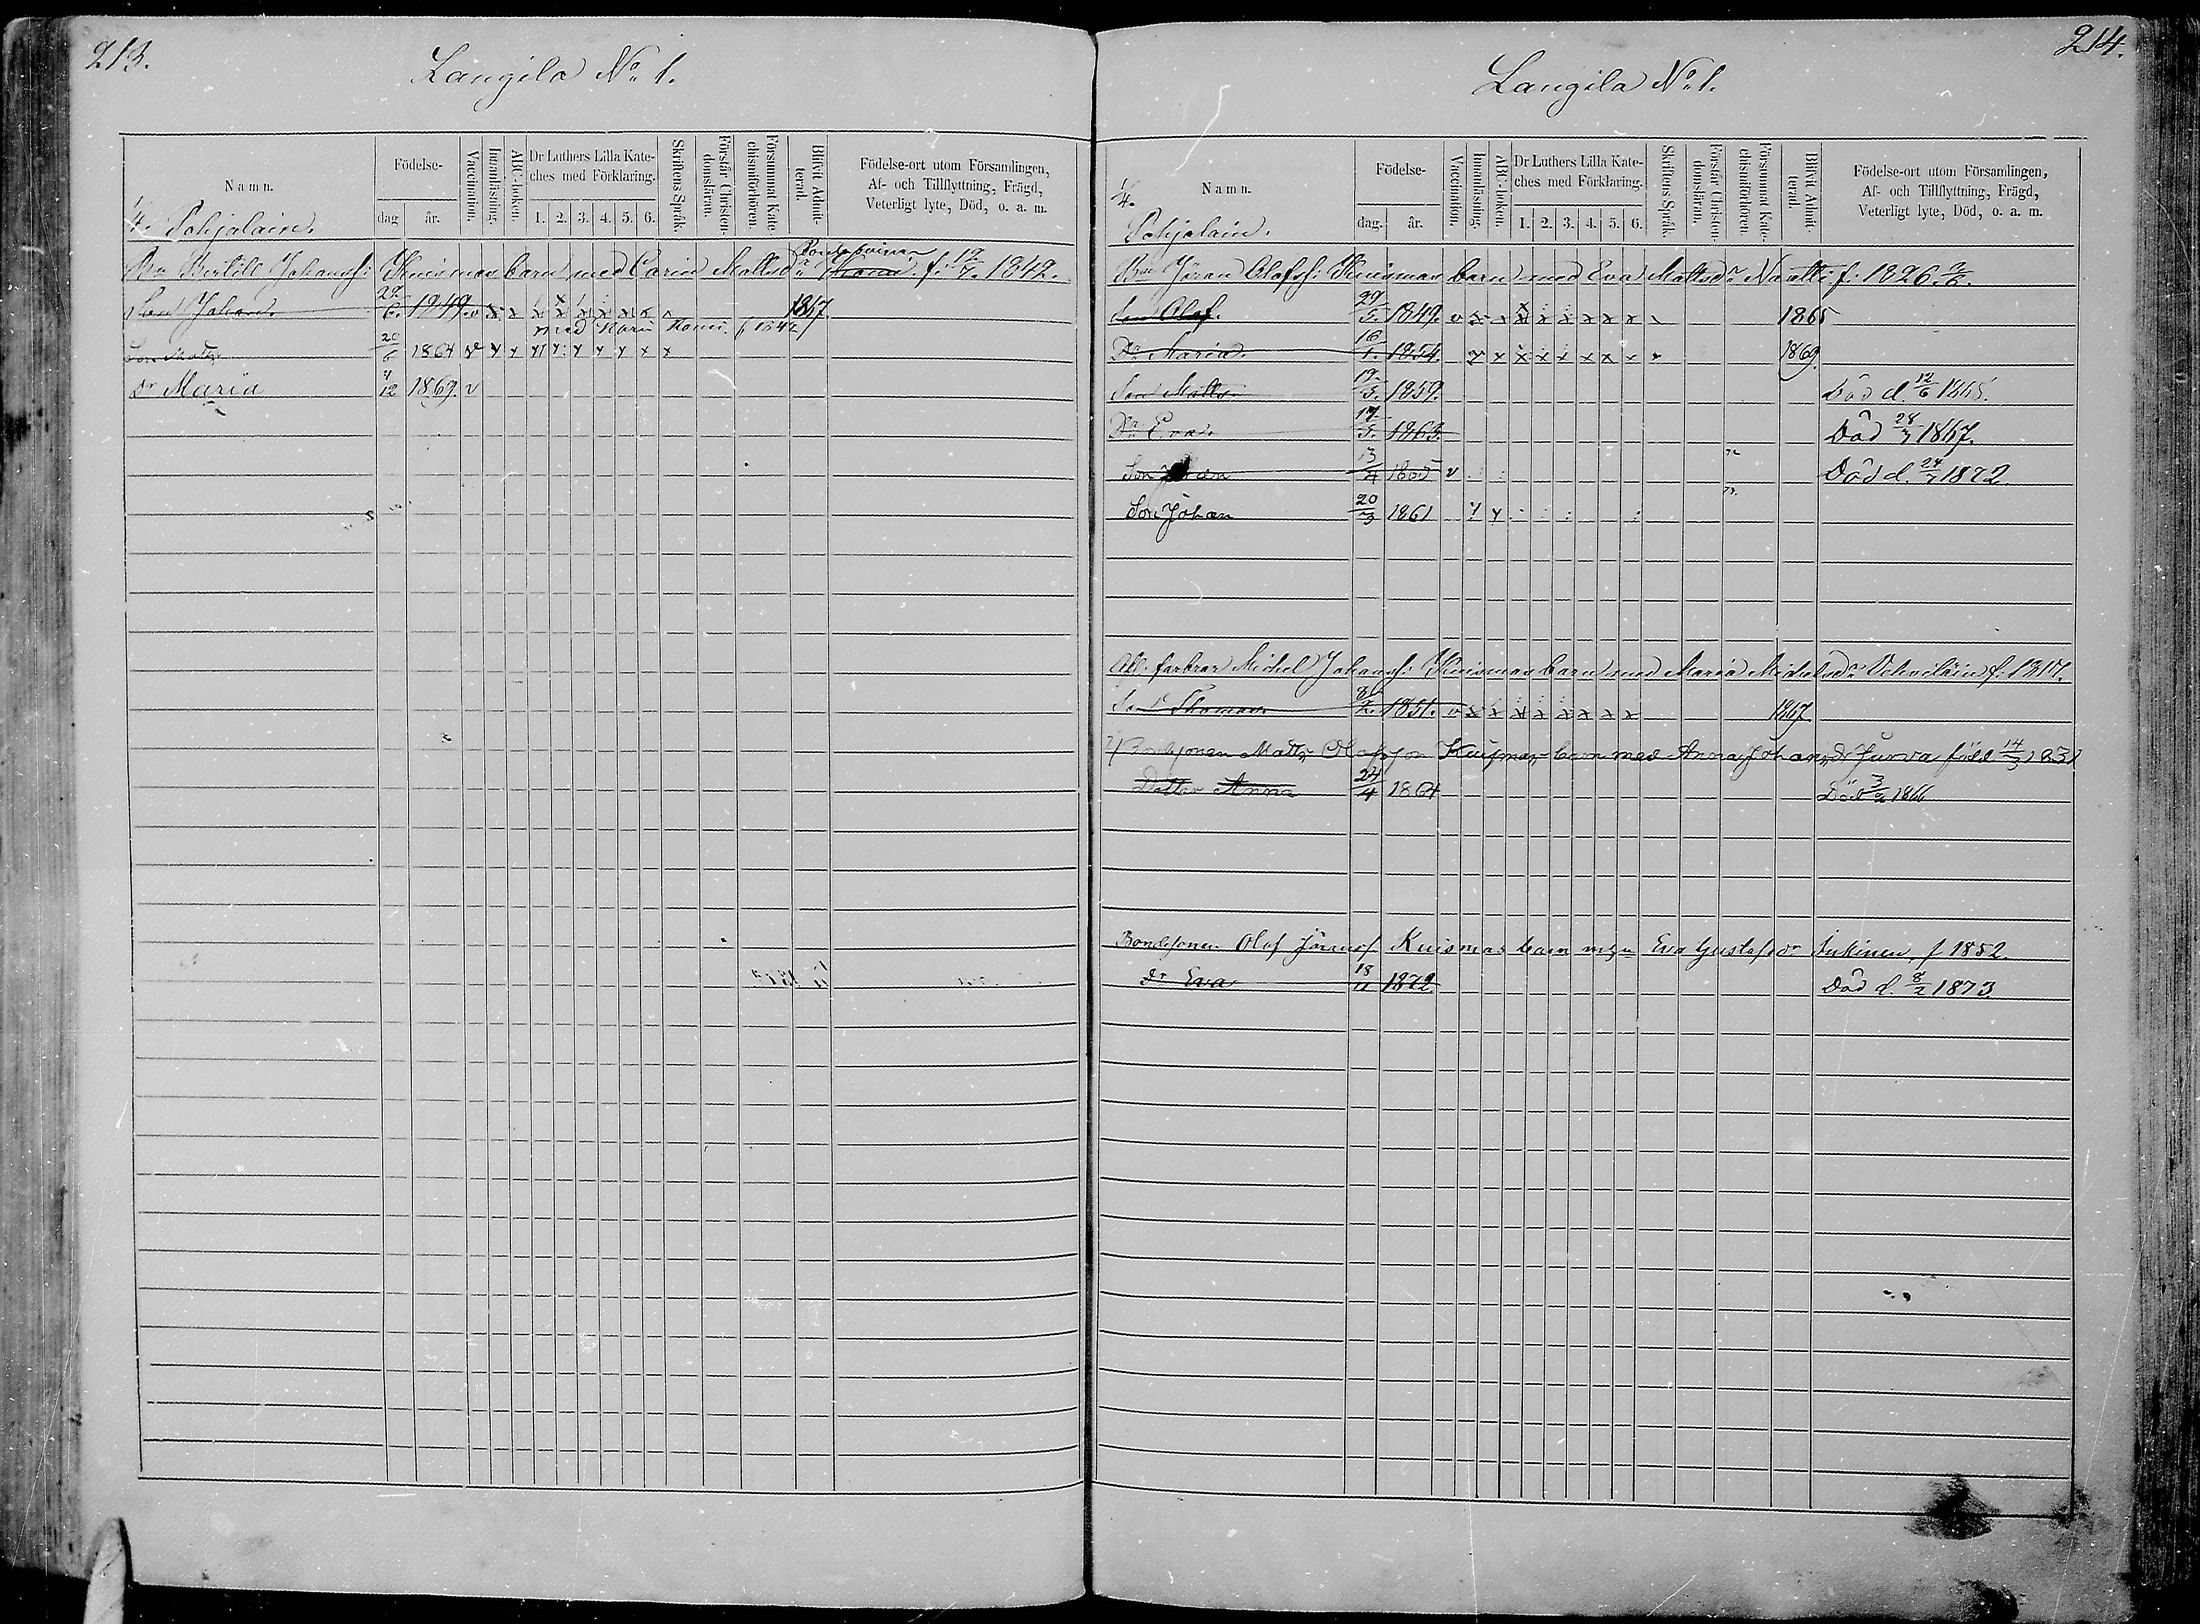 213.
Langila No 1.
Namn.
Födelse-
dag
år.
Vaccination.
Innanläsning.
ABC-boken.
Dr Luthers Lilla Kate-
ches med Förklaring.
1. 2. 3. 4. 5. 6.
Skriftens Språk.
Förstår Christen-
domsläran.
Försummat Kate-
chismiförhören.
Blifvit Admit-
terad.
Födelse-ort utom Församlingen,
Af- och Tillflyttning, Frägd,
Veterligt lyte, Död, o. a. m.
1/4. Pohjalain.
Bn Bertill Johanss: Kuismas barn med Carin Mattsdr f: 12/7. 1842.
Son Johan. 22/6. 1849. v x x x x x x x x 1867.
med Maria f 1842
Son Matts 20/6 1864 v
Dr Maria 4/12 1869. v
214.
Langila No 1.
Namn.
Födelse-
dag.
år.
Vaccination.
Innanläsning.
ABC-boken.
Dr Luthers Lilla Kate-
ches med Förklaring.
1. 2. 3. 4. 5. 6.
Skriftens Språk.
Förstår Christen-
domsläran.
Försummat Kate-
chismiförhören.
Blifvit Admit-
terad.
Födelse-ort utom Församlingen,
Af- och Tillflyttning, Frägd,
Veterligt lyte, Död, o. a. m.
1/4.
Pohjalain.
Bn Jöran Olofss: Kuismas barn med Eva Mattsdr Naatti f: 1826
Son Olof. 29/5. 1849. v x x x x x x x x 1865
Dr Maria. 16/1. 1854. x x x x x x x x 1869.
Son Matts. 19/3. 1859. Död d. 12/6 1865.
Dr Eva. 17/5. 1863. Död 28/7 1867.
72
Son 13/4 1865 v Död d. 24/7 1872.
Son Johan 20/3 1861
Afl. farbror Michel Johanss: Kuismas barn med Maria Michelsdr
Son Thomas. 1851. v x x x x x x x x 1867
Bondsonen Matts Olofsson Kuismas barn med Anna Johansdr Jurva född 14/3 1831
Dotter Anna 24/4 1864 Död 3/2 1866
Bondsonen Olof Jöranss Kuismas barn m h n Eva Gustafsdr Inkinen f 1852.
Dr Eva 18/11 1872. Död d. 8/2 1873.